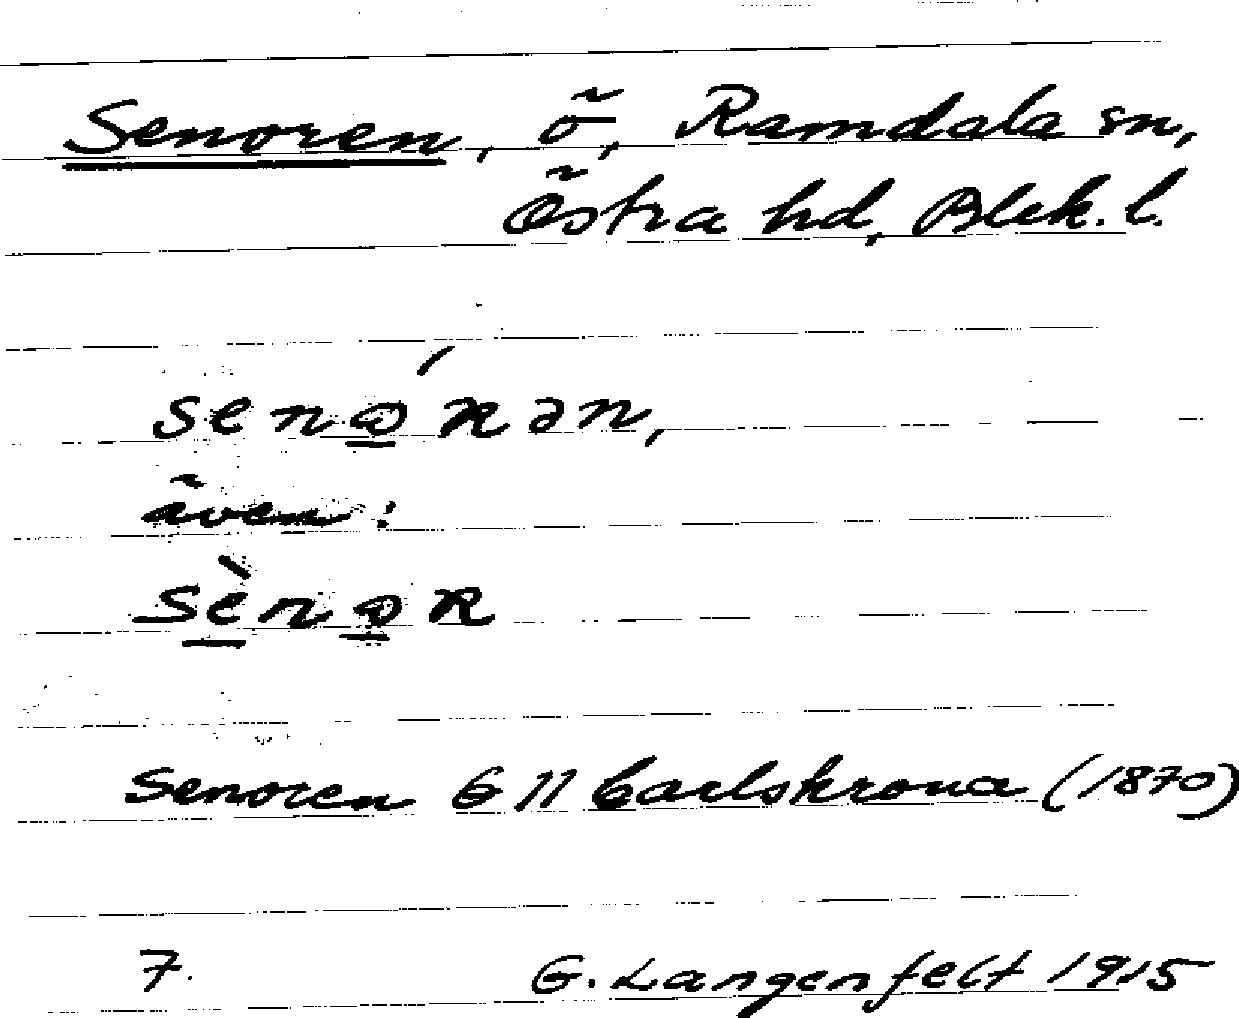 Senoren, ö, Ramdala sn,
Östra hd, Blek. l.
senɷ́ʀən,
även:
sènɷʀ
Senoren G 11 Carlskrona (1870)
7. G. Langenfelt 1915